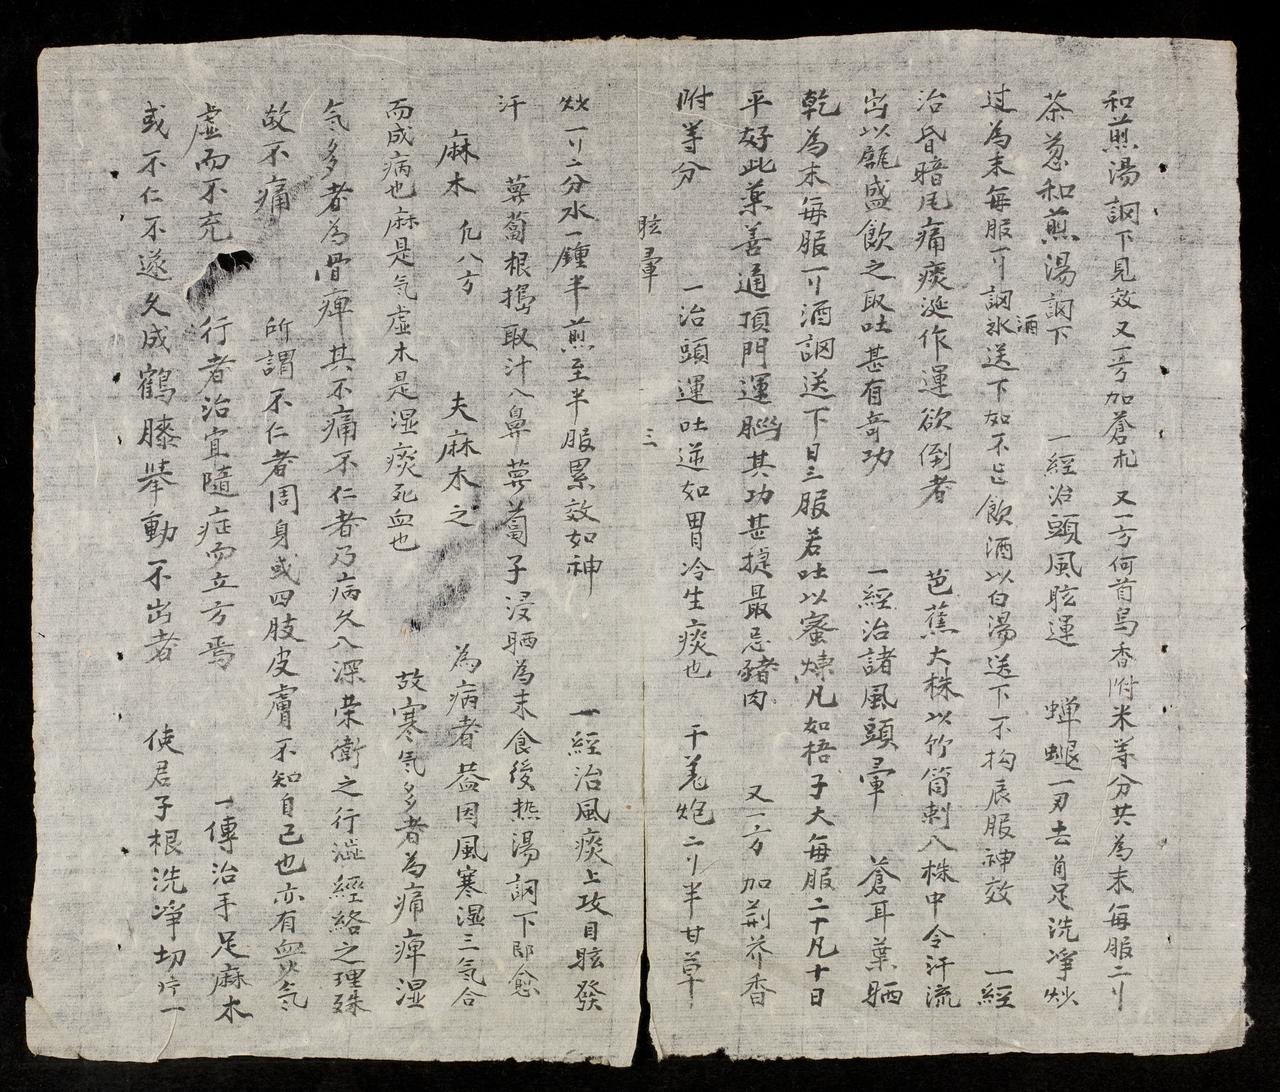 和煎湯調下見效 又一方加蒼朮 又一方何首烏香附米等分共為末每服二刂
茶葱和煎湯調下 一經治頭風眩運 蟬蛻一刃去角足洗凈炒
过為末每服一刂調氷酒送下如不 飲酒以白湯送下不拘辰服神效 一經
治昏暗尾痛痰涎作運欲倒者 芭蕉大株以竹筒刺入株中令汗流
出以 盛飲之取吐甚有奇功 一經治諸風頭暈 蒼耳葉晒
乾為末每服一刂酒調送下日三服若吐以蜜煉凡如梧子大每服二十凡十日
平好此藥善通頂門運腦其功甚捷最忌豬肉 又一方 加荊芥香
附等分 一治頭運吐逆如胃冷生痰也 干羌炮二刂半甘草
眩暈 三
炒一刂二分水一鍾半煎至半服累效如神 一經治風痰上攻目眩發
汗 蘿蔔根搗取汁入鼻 蘿蔔子浸晒為末食後热湯調下即愈
麻木 凢八方 夫麻木之 為病者葢因風寒湿三気合
而成病也麻是気虚木是湿痰死血也 故寒気多者為痛痺湿
気多者為骨痺 其不痛不仁者乃病久入深荣衛之行澁經絡之理殊
故不痛 所謂不仁者周身或四肢皮膚不知自己也亦有血少気
虚而不充 行者治宜隨症而立方焉 一傳治手足麻木
或不仁不遂久成鶴膝举動不出者 使君子根洗凈切片一